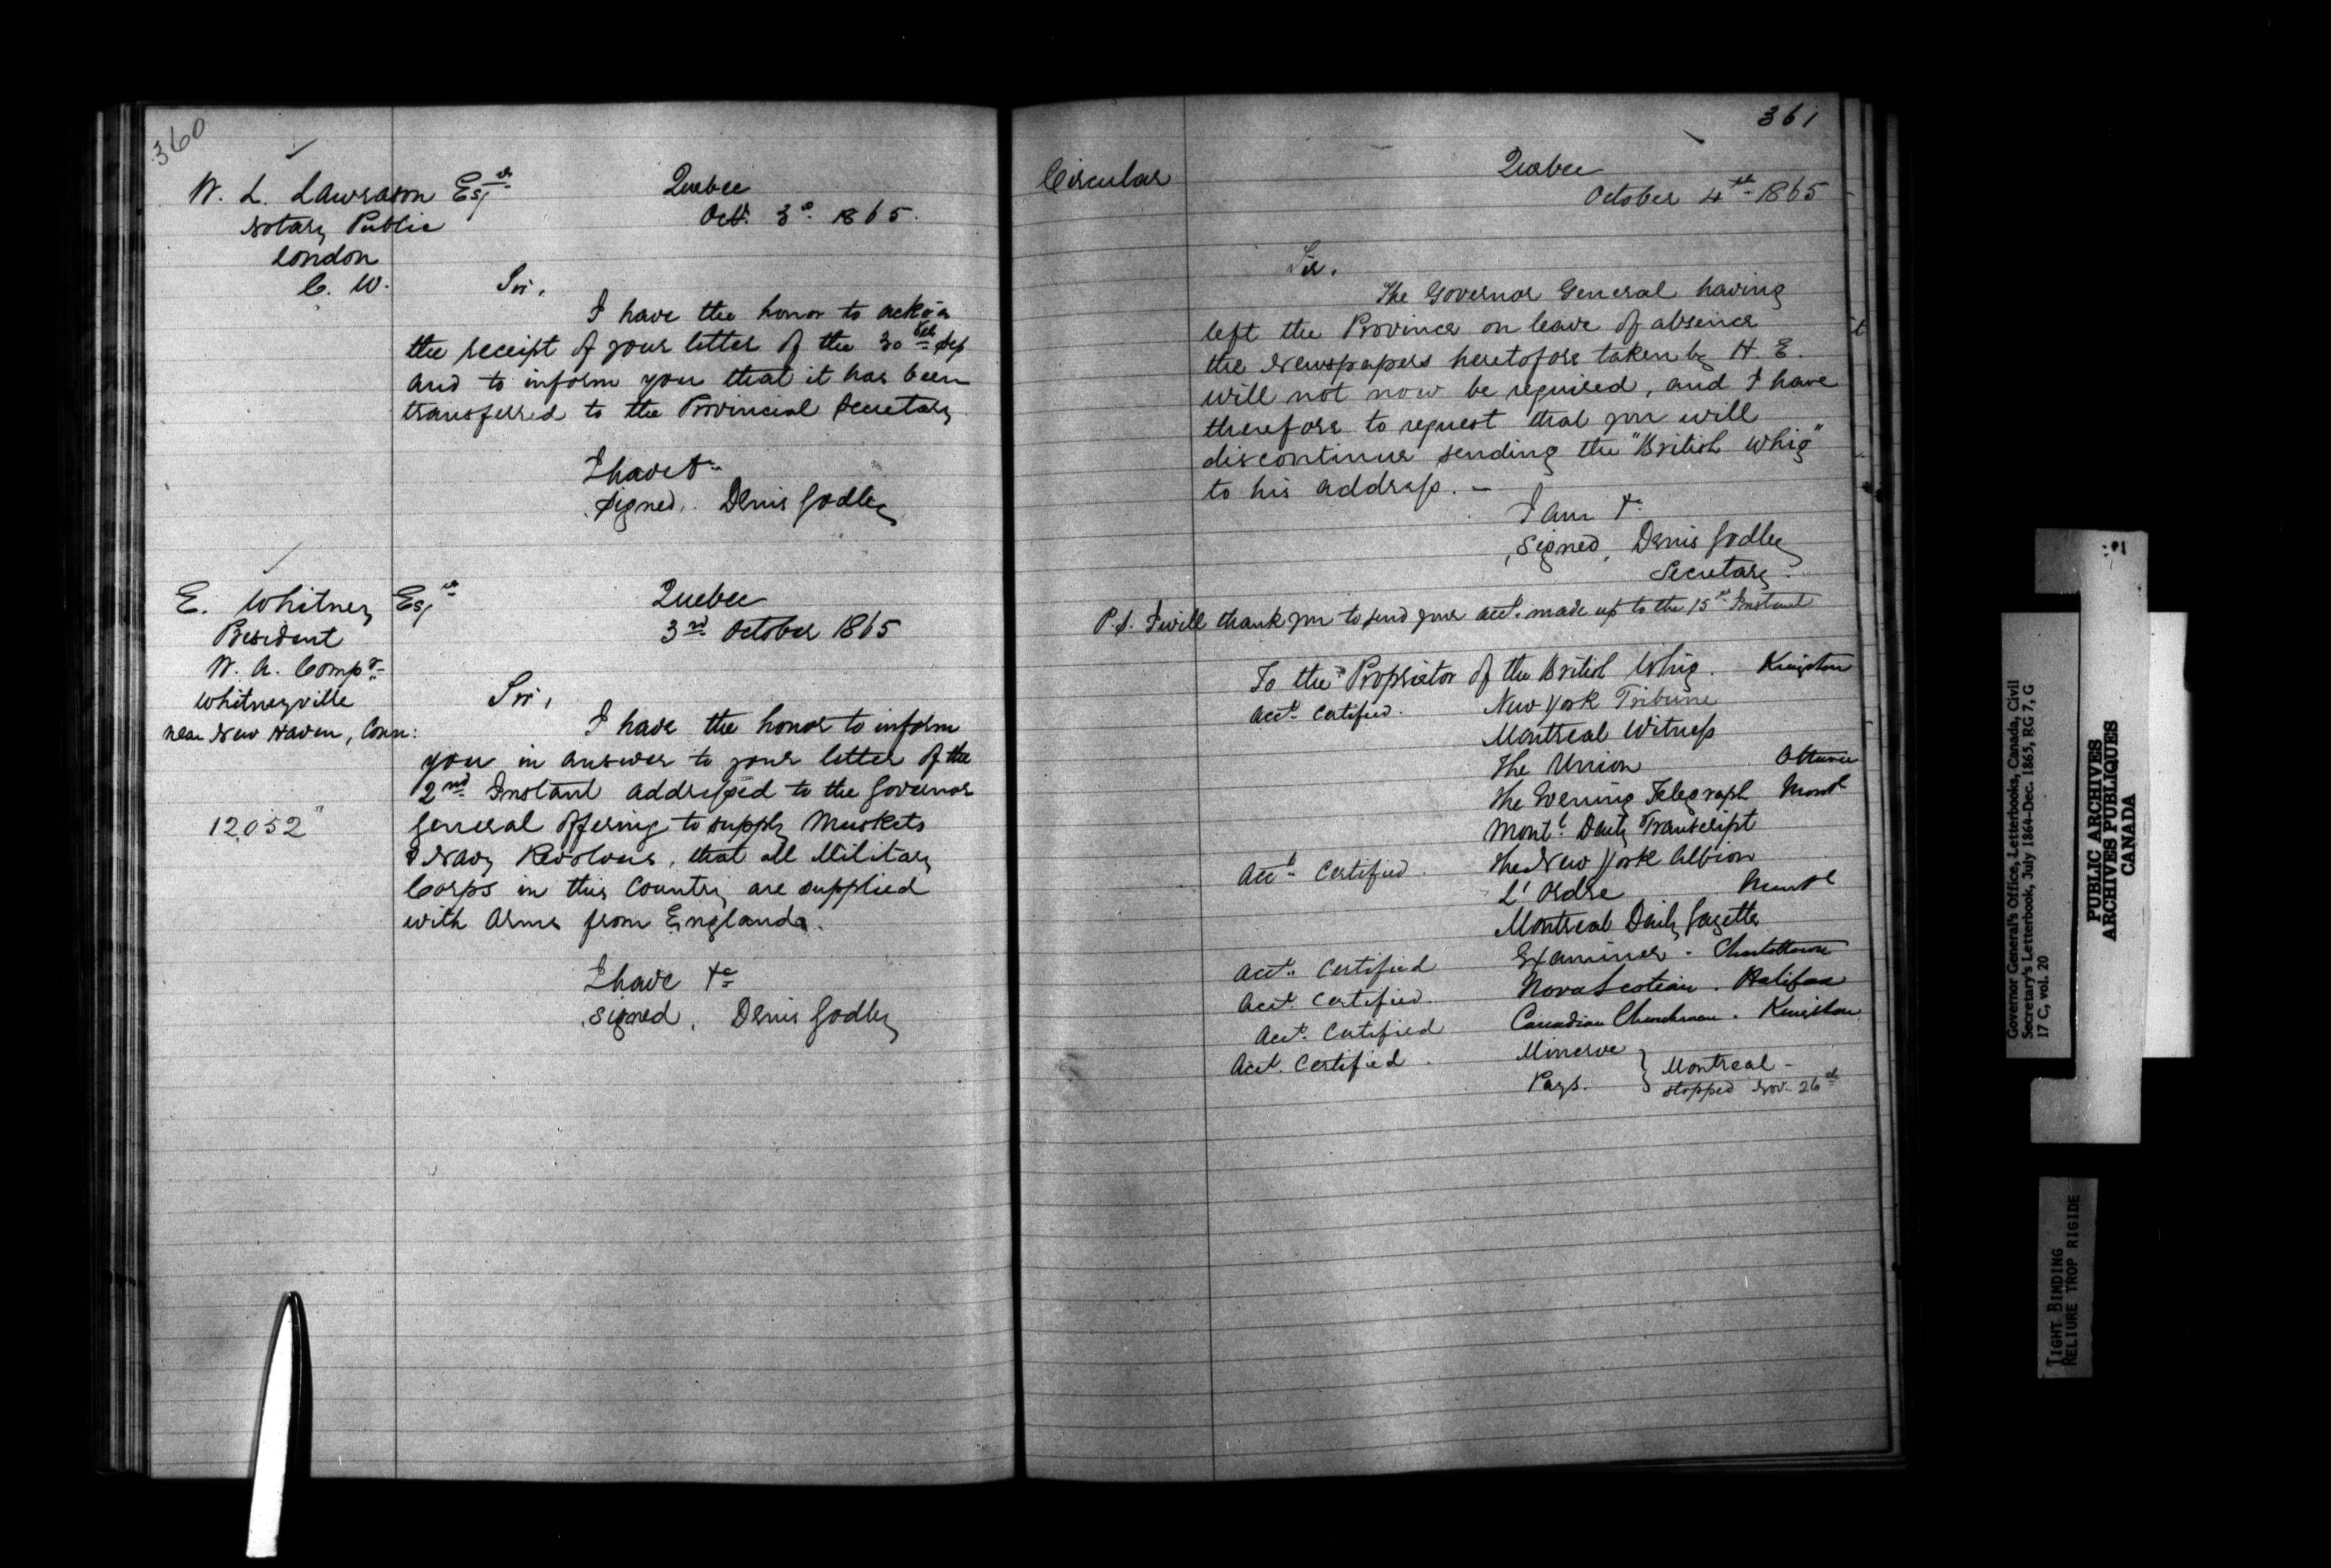 360
W. L. Lawrason Esqre
Notary Public
London
C. W.
Quebec
Octr. 3d. 1865.
Sir,
I have the honor to ackn
the receipt of your letter of the 30th Sep
and to inform you that it has been
transferred to the Provincial Secretary
I have &c
signed. Denis Godley
E. Whitney Esqre
President
W. A. Compy
Whitneyville
near New Haven, Conn:
12052
Quebec
3rd October 1865
Sir,
I have the honor to inform
you in answer to your letter of the
2nd Instant addressed to the Governor
General offering to supply Muskets
& Navy Revolvers, that all Military
Corps in this Country are supplied
with Arms from England.
I have &c
signed. Denis Godley
361
Circular
Quebec
October 4th 1865
Sir.
The Governor General having
left the Province on leave of absence
the Newspapers heretofore taken by H. E.
will not now be required, and I have
therefore to request that you will
discontinue sending the "British Whig"
to his address. —
I am &c
signed, Denis Godley
Secretary.
P.S. I will thank you to send your acct. made up to the 15th Instant
To the Proprietor of the British Whig. Kingston
acct. certified. New York Tribune
Montreal Witness
The Union Ottawa
The Evening Telegraph Montl
Montl. Daily Transcript
Acct. Certified. The New York Albion
L'Ordre Montl
Montreal Daily Gazette
Acct. Certified Examiner. Charlottetown
Acct. Certified. Nova Scotian. Halifax
Acct. Certified Canadian Churchman. Kingston
Acct. Certified. Minerve } Montreal -
Pays. } stopped Nov. 26th
Governor General's Office, Letterbooks, Canada, Civil
Secretary's Letterbook, July 1864-Dec. 1865, RG 7, G
17 C, vol. 20
PUBLIC ARCHIVES
ARCHIVES PUBLIQUES
CANADA
TIGHT BINDING
RELIURE TROP RIGIDE